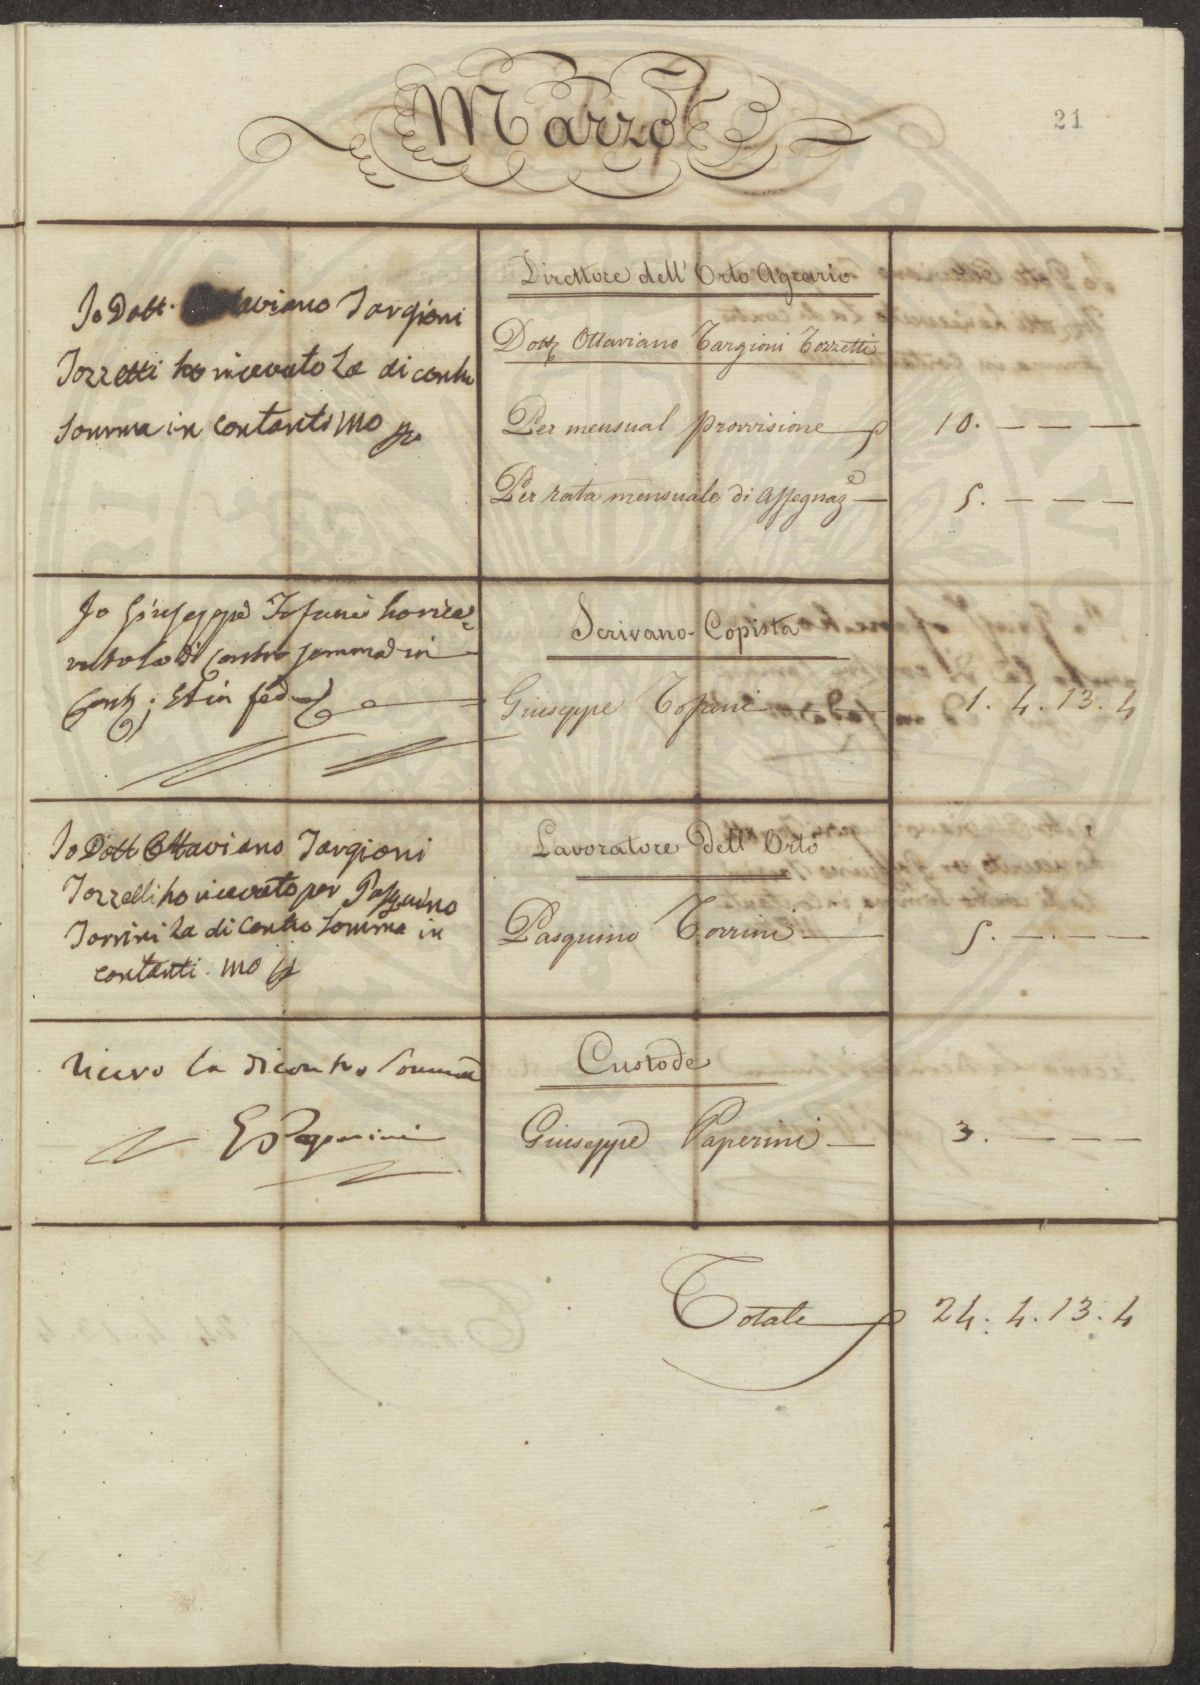 Marzo
21
Io Dott. Ottaviano Targioni
Tozzetti ho ricevuto La di contro
Somma in Contanti mo pp
Direttore dell' Orto Agrario
Dott. Ottaviano Targioni Tozzetti
Per mensual provvisione 10. — — —
Per rata mensuale di Assegnaz.e — 5. — — —
Io Giuseppe Tofani ho rice=
vuto la di contro somma in
Cont; Et in fede
Scrivano-Copista
Giuseppe Tofani — 1. 4. 13. 4
Io Dott Ottaviano Targioni
Tozzetti ho ricevuto per Pasquino
Torrini La di Contro Somma in
contanti mo pp
Lavoratore dell' Orto
Pasquino Torrini — 5. — — —
Ricevo la di contro Somma
G Paperini
Custode
Giuseppe Paperini — 3. — — —
Totale 24. 4. 13. 4